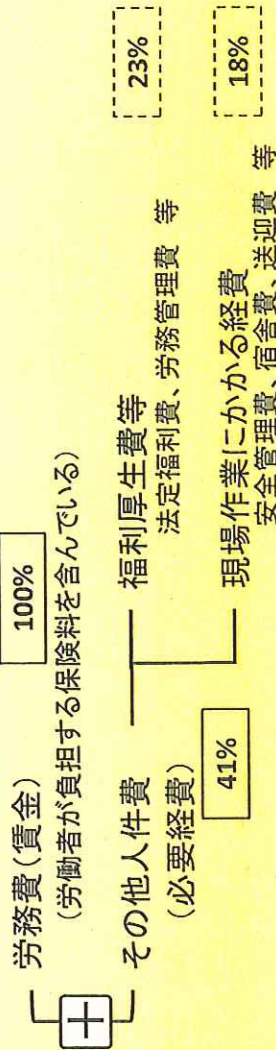 労務費(賃金)
100%
(労働者が負担する保険料を含んでいる)
＋
その他人件費
(必要経費)
41%
福利厚生費等
23%
法定福利費、労務管理費 等
現場作業にかかる経費
18%
安全管理費、宿舎費、送迎費 等